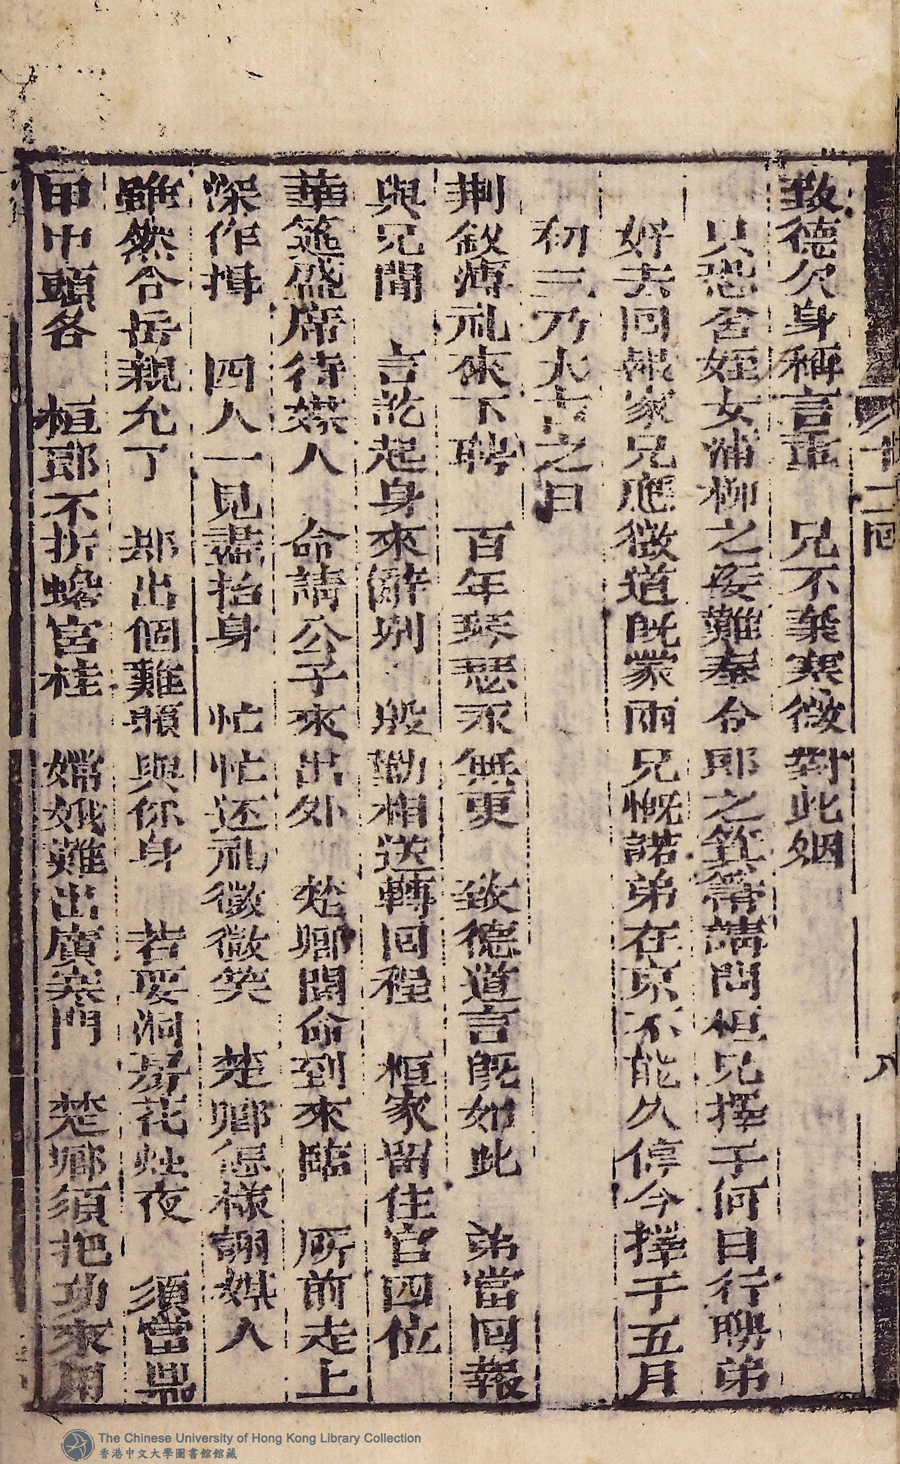 卄二回
八
致德欠身稱言重　兄不棄寒微對此姻
只恐舍姪女蒲柳之姿難奉令郎之箕箒請問桓兄擇于何日行聘弟
好去回報家兄應徵道既蒙兩兄慨諾弟在京不能久停今擇于五月
初三乃大吉之日
荆釵薄礼來下聘　百年琴瑟永無更　致德道言既如此　弟當回報
與兄聞　言訖起身來辭別　殷勤相送轉回程　桓家留住官四位
華筵盛席待媒人　命請公子來出外　楚卿聞命到來臨　所前走上
深作揖　四人一見盡抬身　忙忙还礼微微笑　楚卿怎樣謝媒人
雖然令岳親允了　却出個難題與你身　若要洞房花烛夜　須當鼎
甲中頭名　桓郎不折蟾宮桂　嫦娥難出廣寒門　楚卿須把功來用
The Chinese University of Hong Kong Library Collection
香港中文大學圖書館館藏